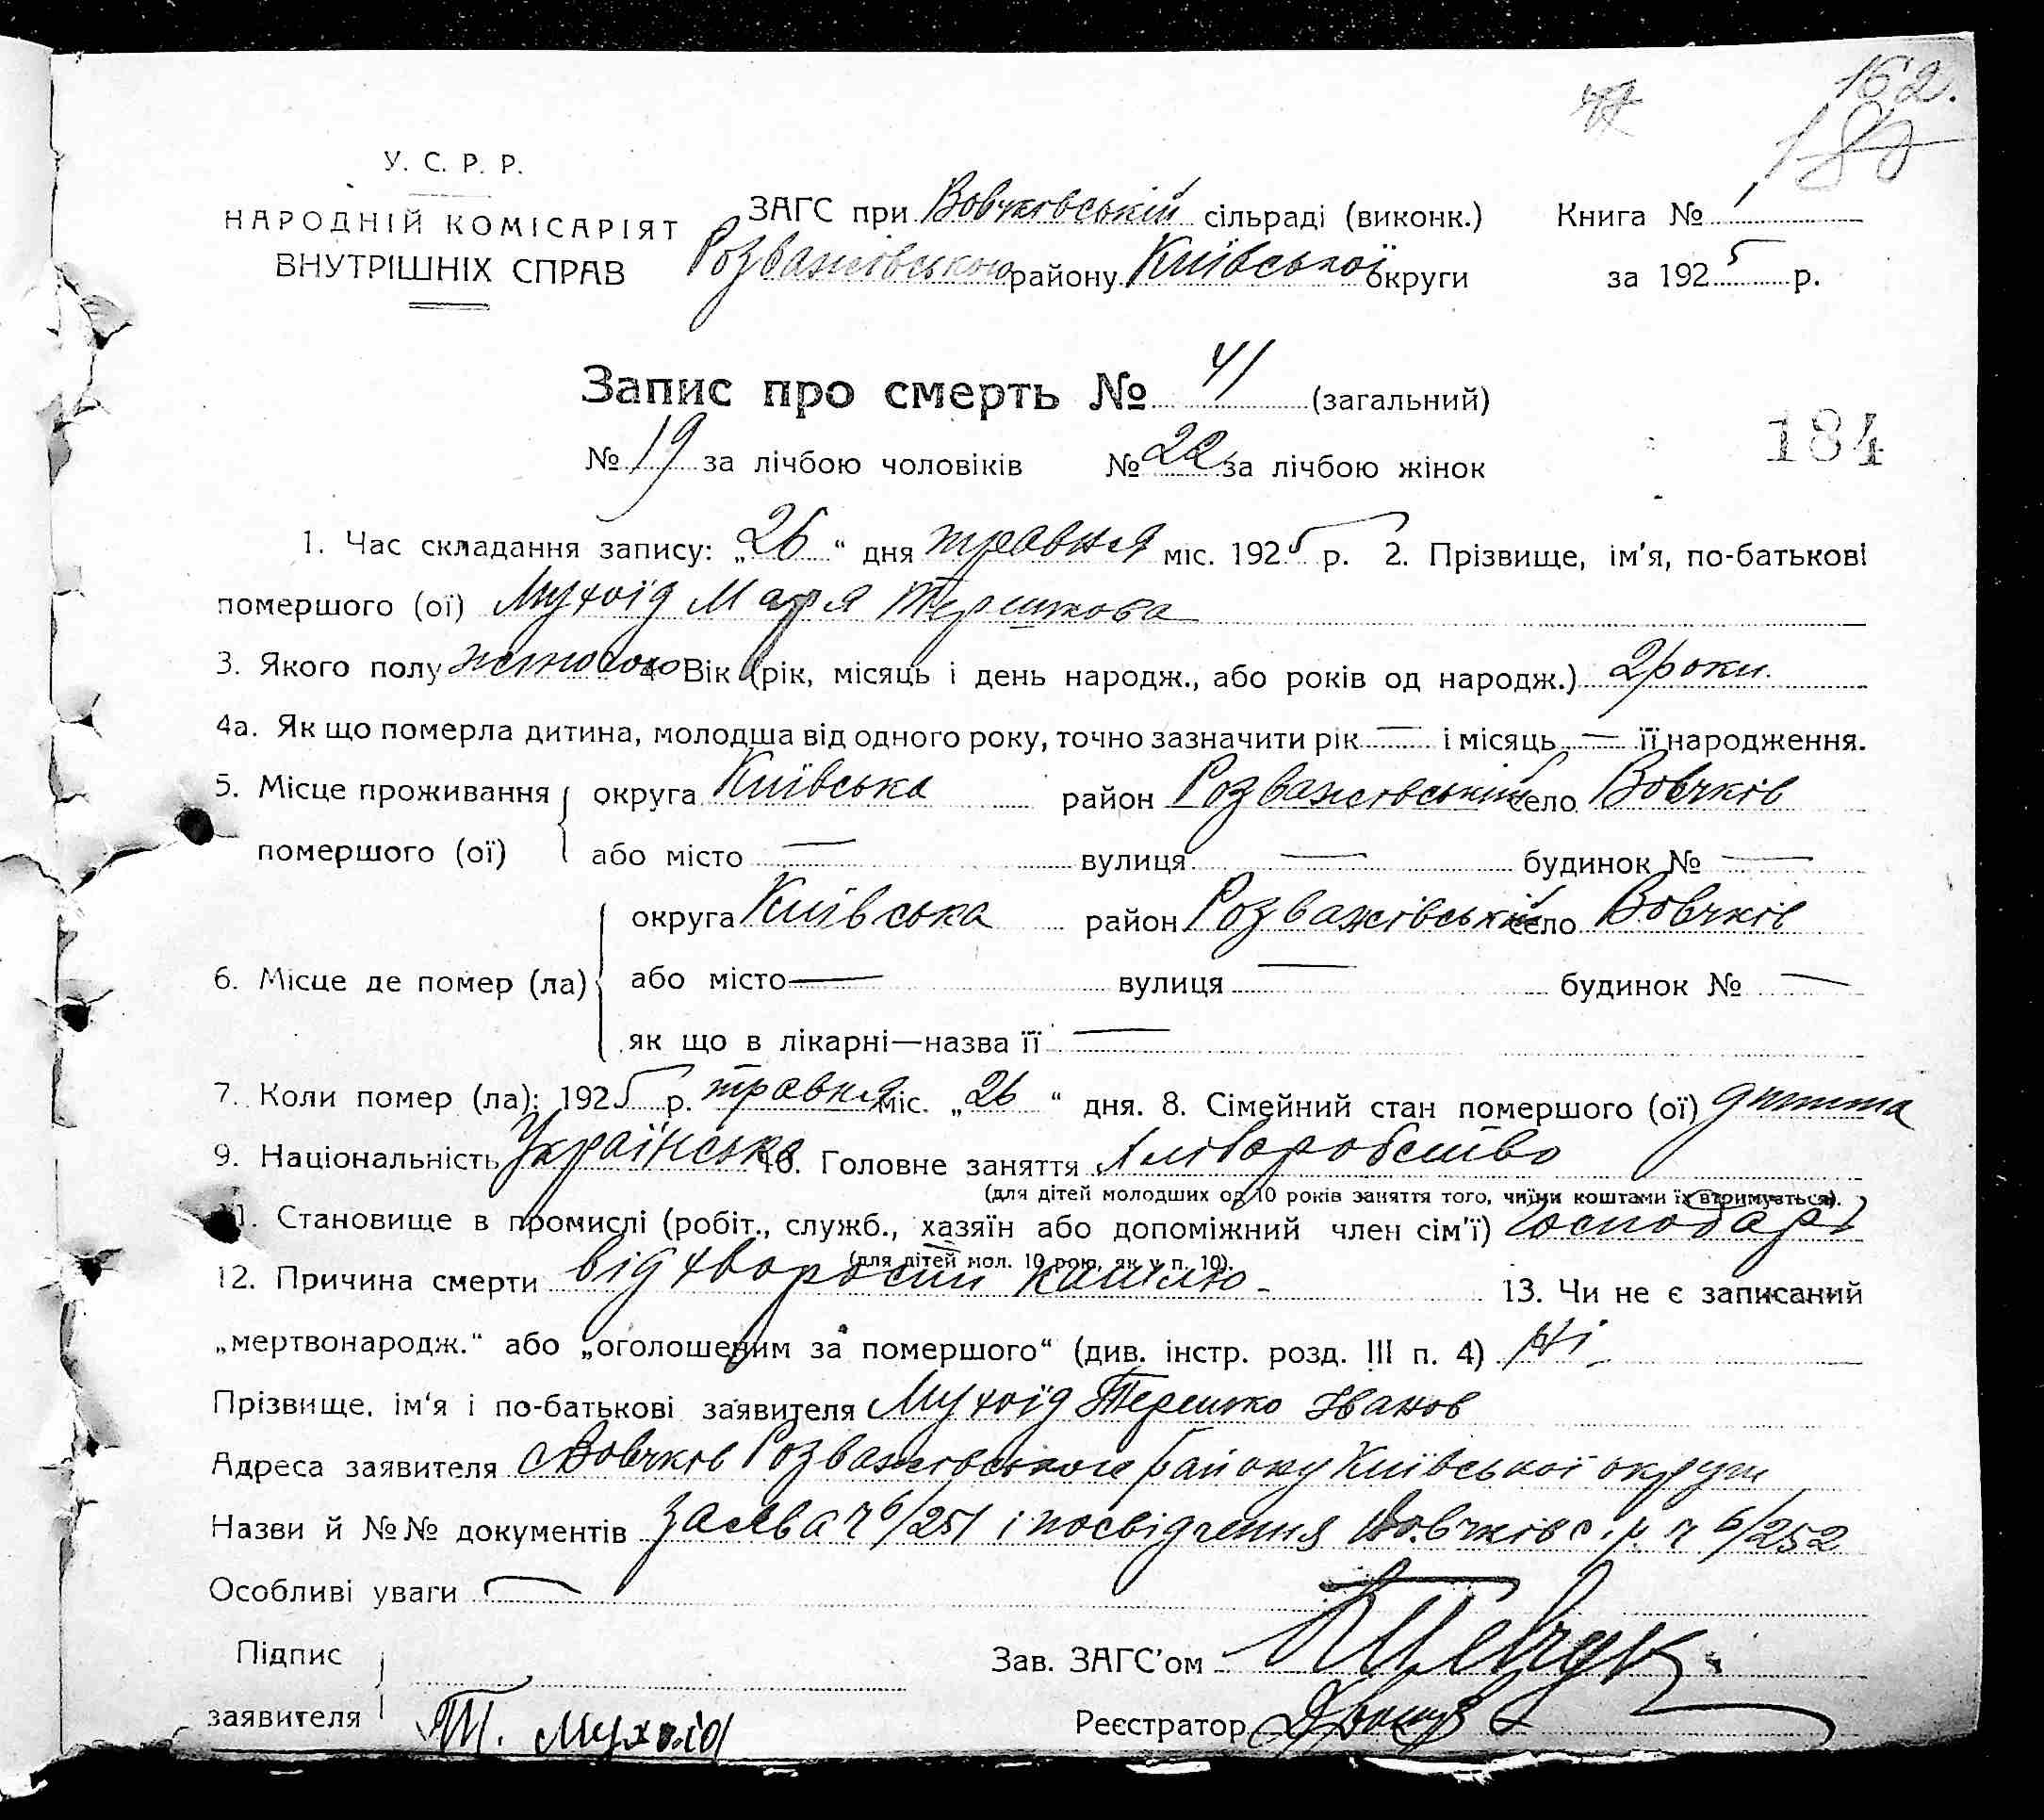 162.
У. С. Р. Р.
НАРОДНІЙ КОМІСАРІЯТ
ВНУТРІШНІХ СПРАВ
ЗАГС при Вовчківській сільраді (виконк.)
Розважівського району Київської округи
Книга № 1
за 1925 р.
Запис про смерть № 41 (загальний)
№ 19 за лічбою чоловіків № 22 за лічбою жінок
184
1. Час складання запису: „26“ дня травня міс. 1925 р. 2. Прізвище, ім'я, по-батькові
помершого (ої) Мухоїд Маря Терешкова
3. Якого полу жіночого 4. Вік (рік, місяць і день народж., або років од народж.) 2 роки.
4а. Як що померла дитина, молодша від одного року, точно зазначити рік — і місяць — її народження.
5. Місце проживання помершого (ої) округа Київська район Розважівський село Вовчків
або місто — вулиця — будинок № —
6. Місце де помер (ла) округа Київська район Розважівський село Вовчків
або місто — вулиця — будинок № —
як що в лікарні—назва її —
7. Коли помер (ла): 1925 р. травня міс. „26“ дня. 8. Сімейний стан помершого (ої) дитина
9. Національність Українська 10. Головне заняття хліборобство
(для дітей молодших од 10 років заняття того, чиїми коштами їх втримується).
11. Становище в промислі (робіт., служб., хазяїн або допоміжний член сім'ї) господарь
(для дітей мол. 10 рою, як у п. 10).
12. Причина смерти від хворости кашлю - 13. Чи не є записаний
„мертвонародж.“ або „оголошеним за помершого“ (див. інстр. розд. III п. 4) Ні
Прізвище, ім'я і по-батькові заявителя Мухоїд Терешко Іванов
Адреса заявителя с Вовчків Розважівського району Київської округи
Назви й №№ документів заява ч 6/251 і посвідчення Вовчків с. р. ч 6/252
Особливі уваги —
Підпис заявителя Т. Мухоїд
Зав. ЗАГС'ом
Реєстратор